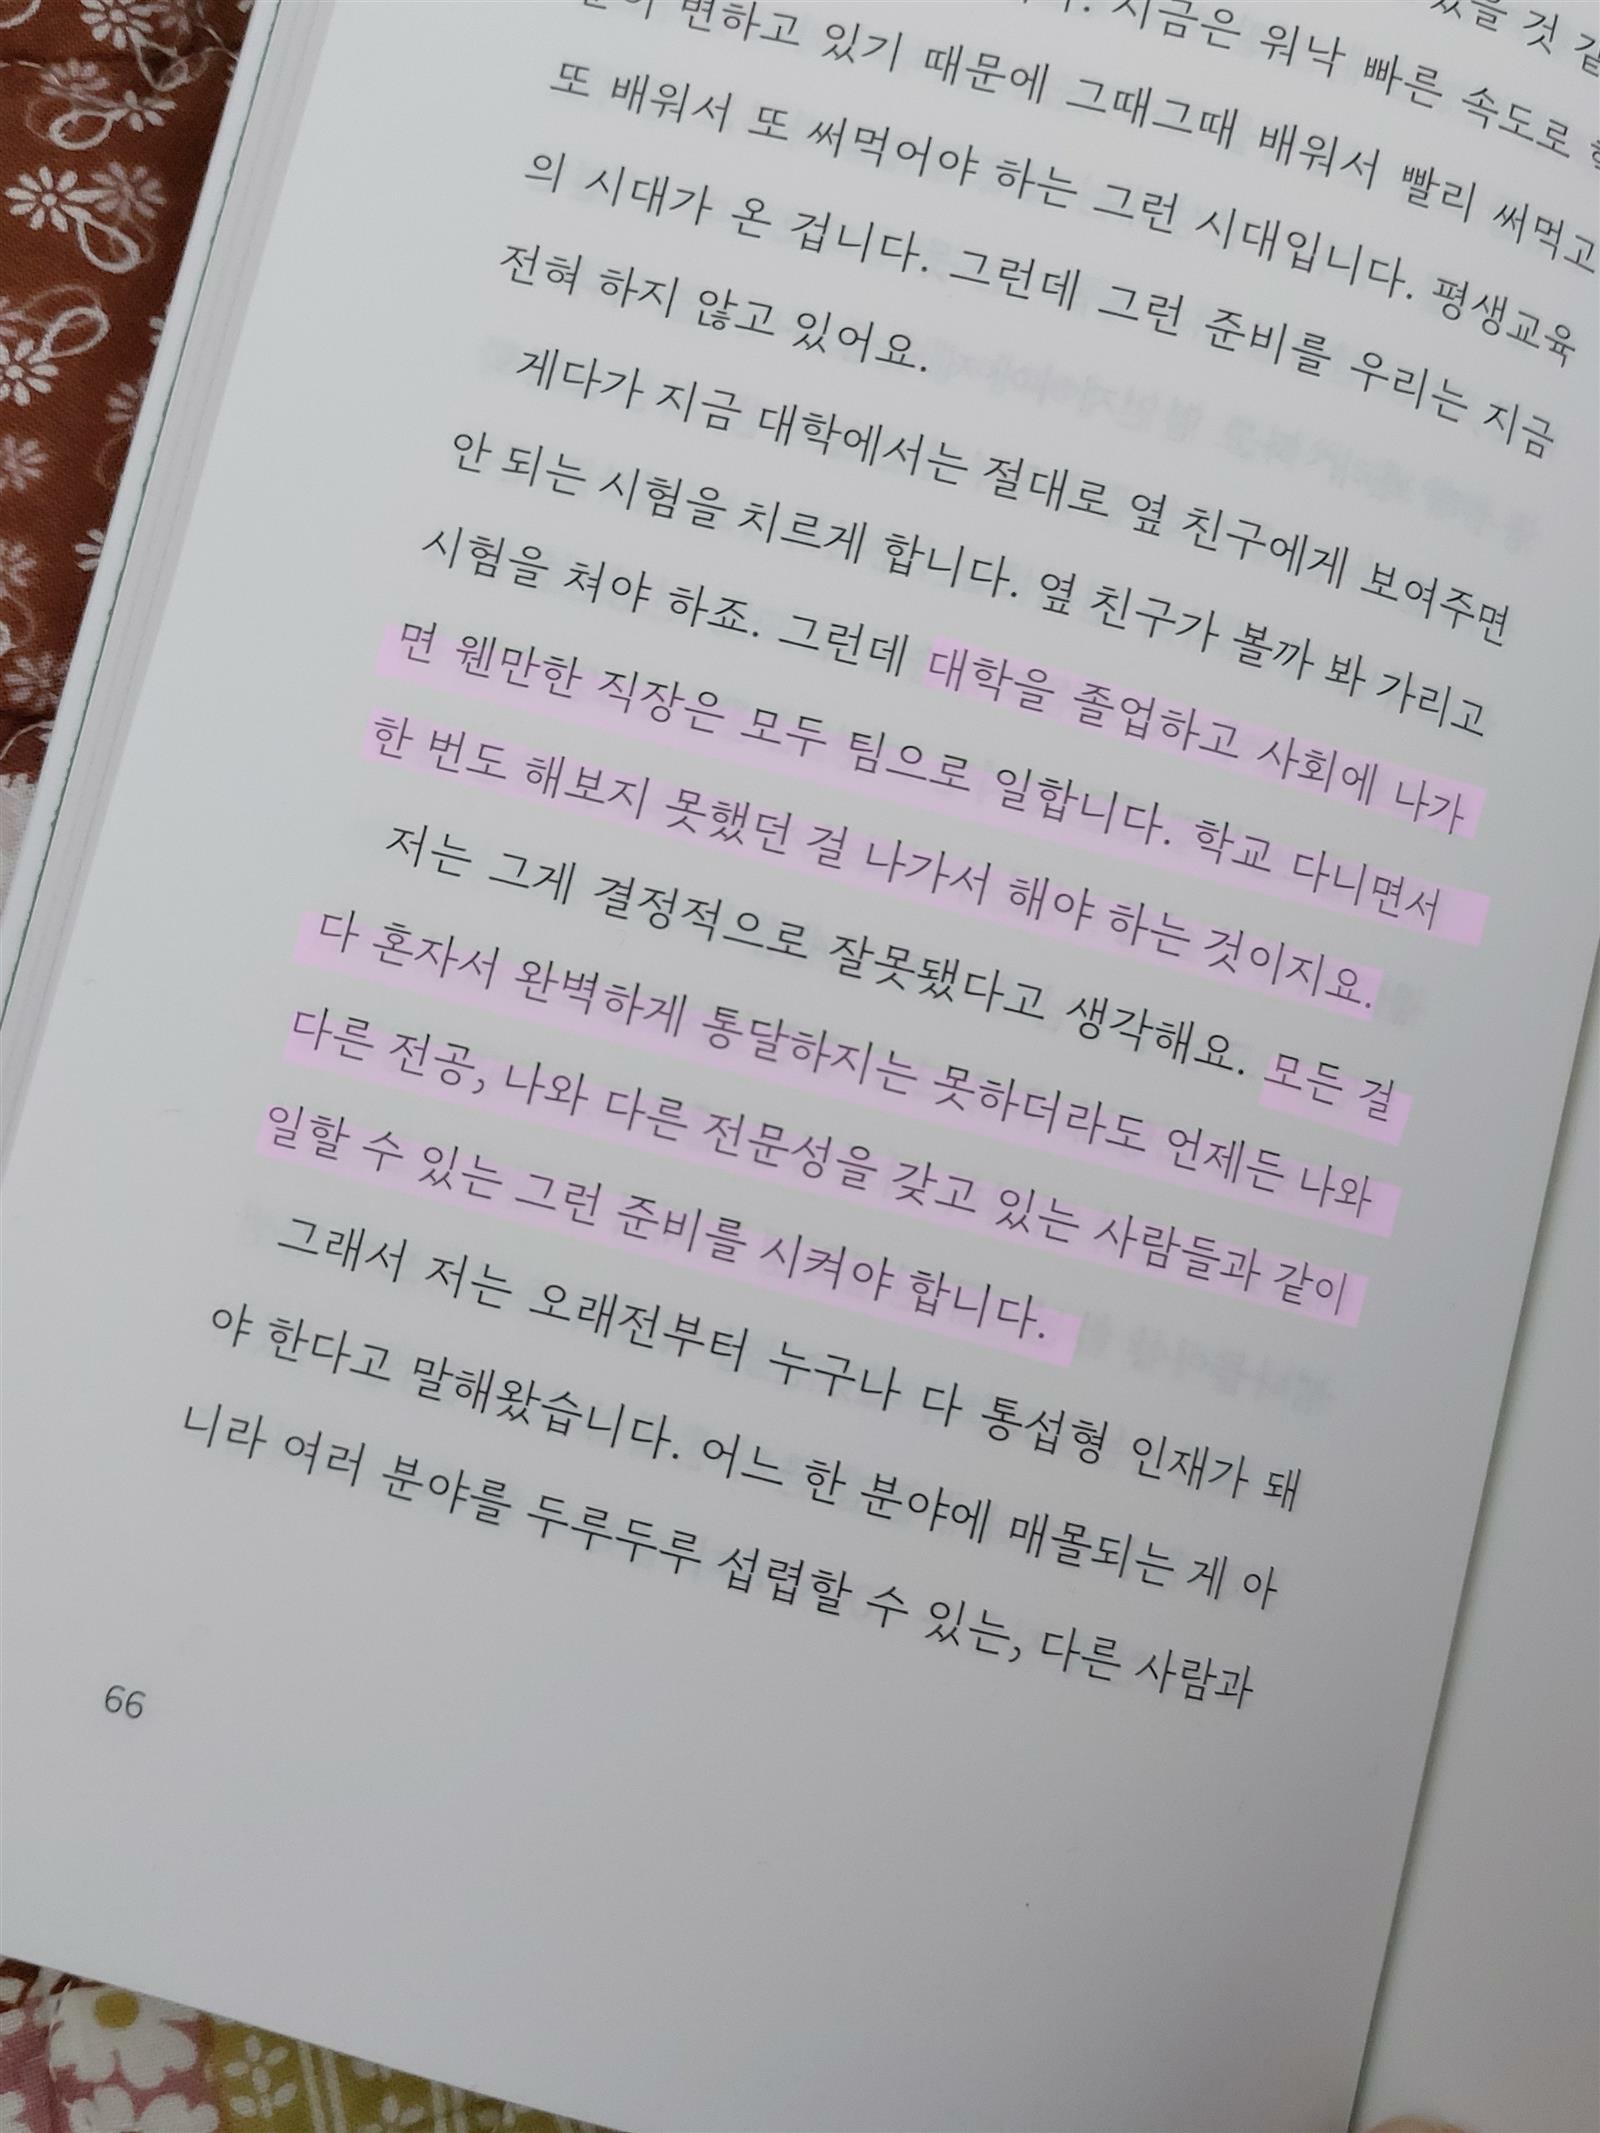 있을 것 같
지금은 워낙 빠른 속도로
변하고 있기 때문에 그때그때 배워서 빨리 써먹고
또 배워서 또 써먹어야 하는 그런 시대입니다. 평생교육
의 시대가 온 겁니다. 그런데 그런 준비를 우리는 지금
전혀 하지 않고 있어요.
게다가 지금 대학에서는 절대로 옆 친구에게 보여주면
안 되는 시험을 치르게 합니다. 옆 친구가 볼까 봐 가리고
시험을 쳐야 하죠. 그런데 대학을 졸업하고 사회에 나가
면 웬만한 직장은 모두 팀으로 일합니다. 학교 다니면서
한 번도 해보지 못했던 걸 나가서 해야 하는 것이지요.
저는 그게 결정적으로 잘못됐다고 생각해요. 모든 걸
다 혼자서 완벽하게 통달하지는 못하더라도 언제든 나와
다른 전공, 나와 다른 전문성을 갖고 있는 사람들과 같이
일할 수 있는 그런 준비를 시켜야 합니다.
그래서 저는 오래전부터 누구나 다 통섭형 인재가 돼
야 한다고 말해왔습니다. 어느 한 분야에 매몰되는 게 아
니라 여러 분야를 두루두루 섭렵할 수 있는, 다른 사람과
66